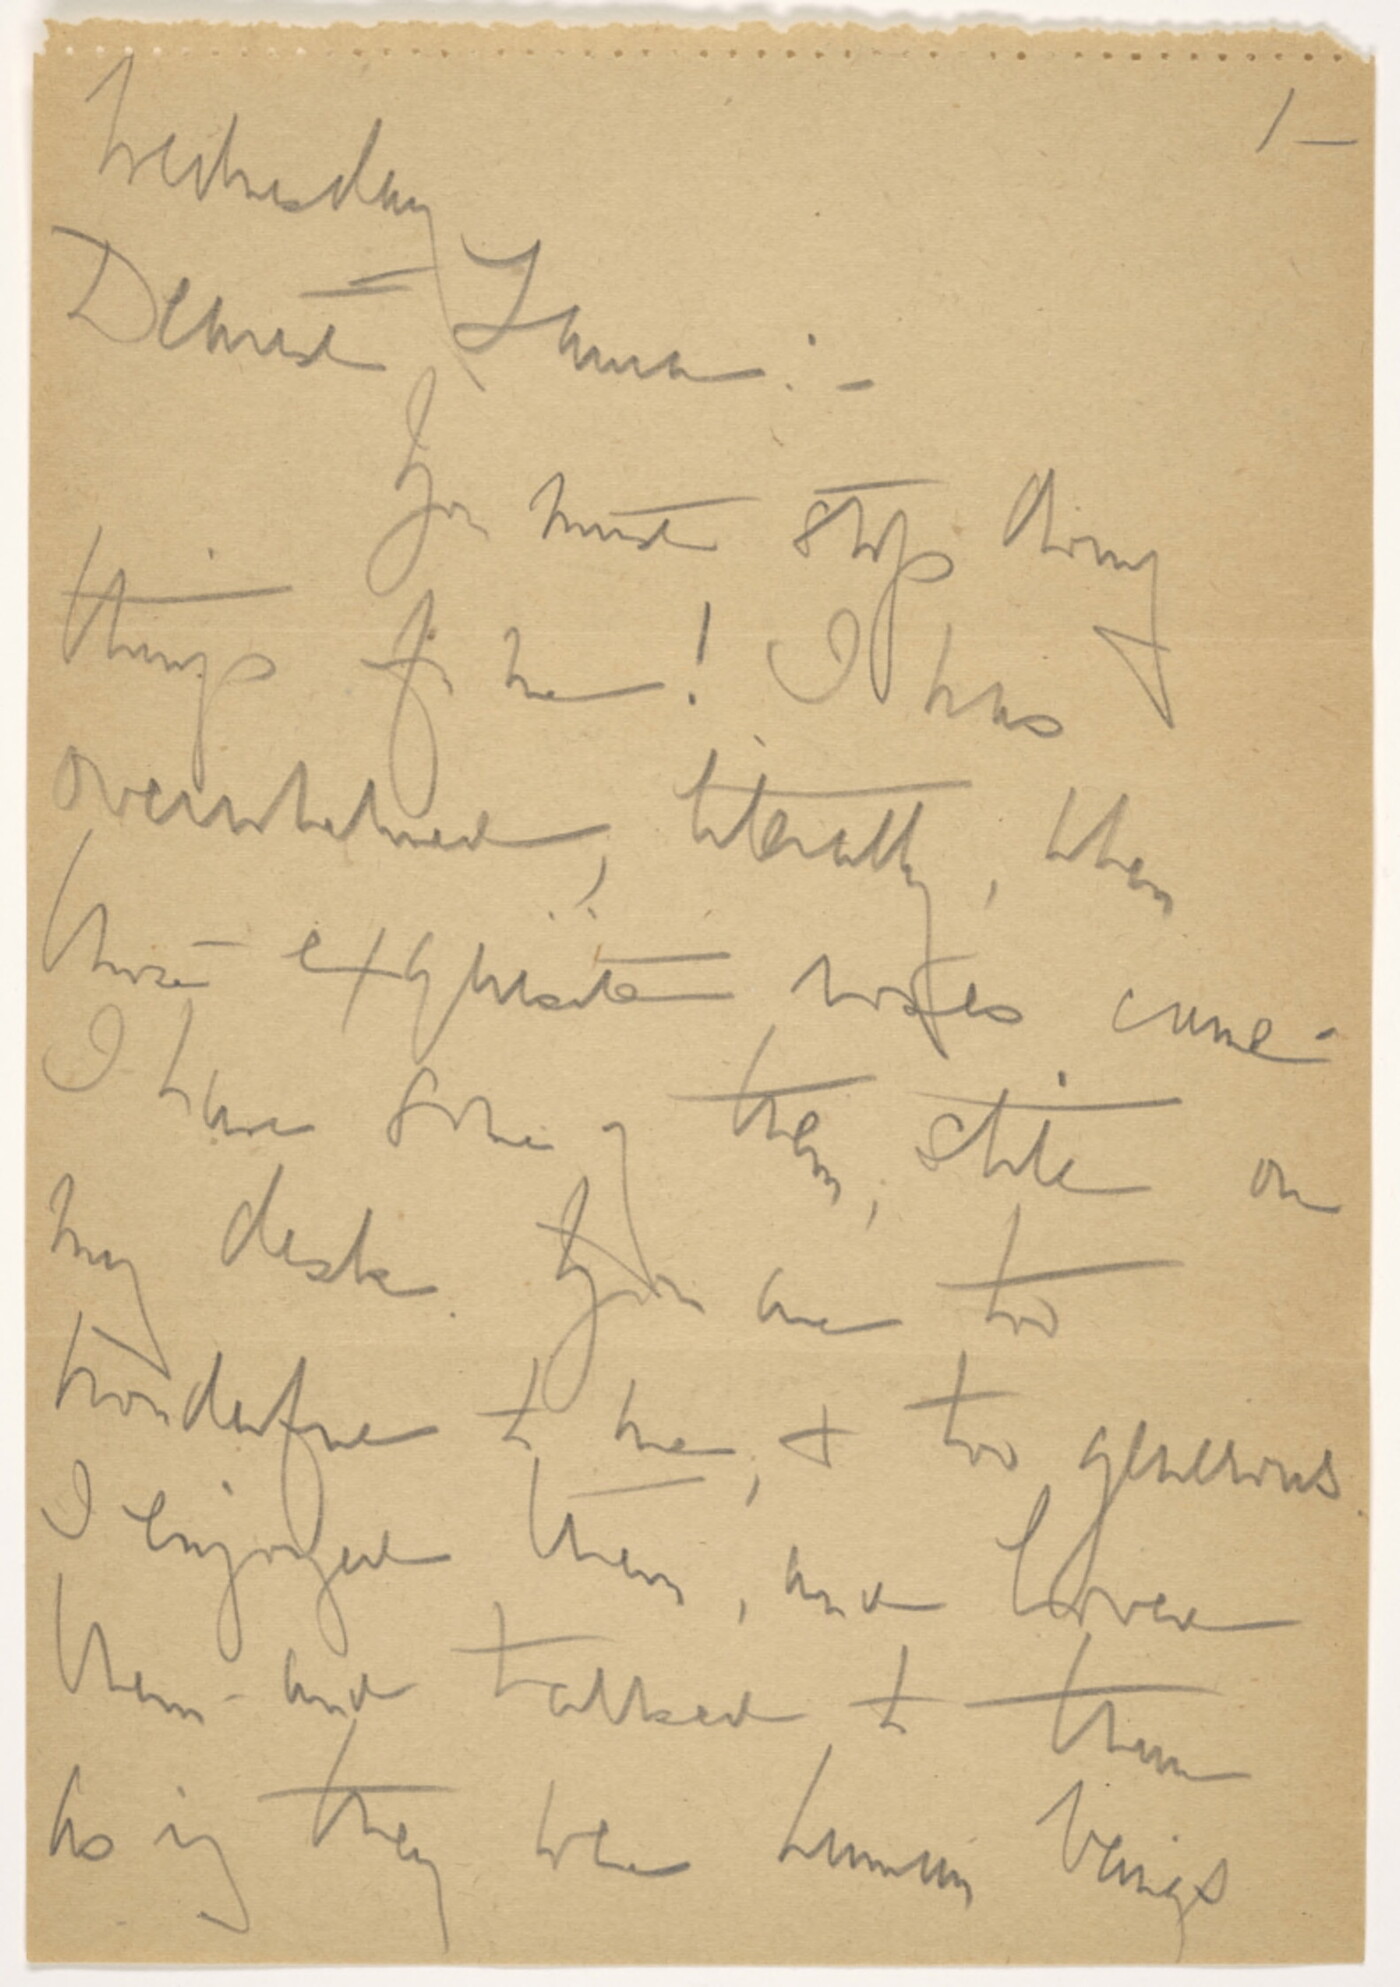 1-
Wednesday
Dearest Laura:-
You must stop doing
things for me! I was
overwhelmed, literally, when
those exquisite roses came-
I have some of them, still on
my desk. You are too
wonderful to me, & too generous.
I enjoyed them, and loved
them- and talked to them
as if they were human beings